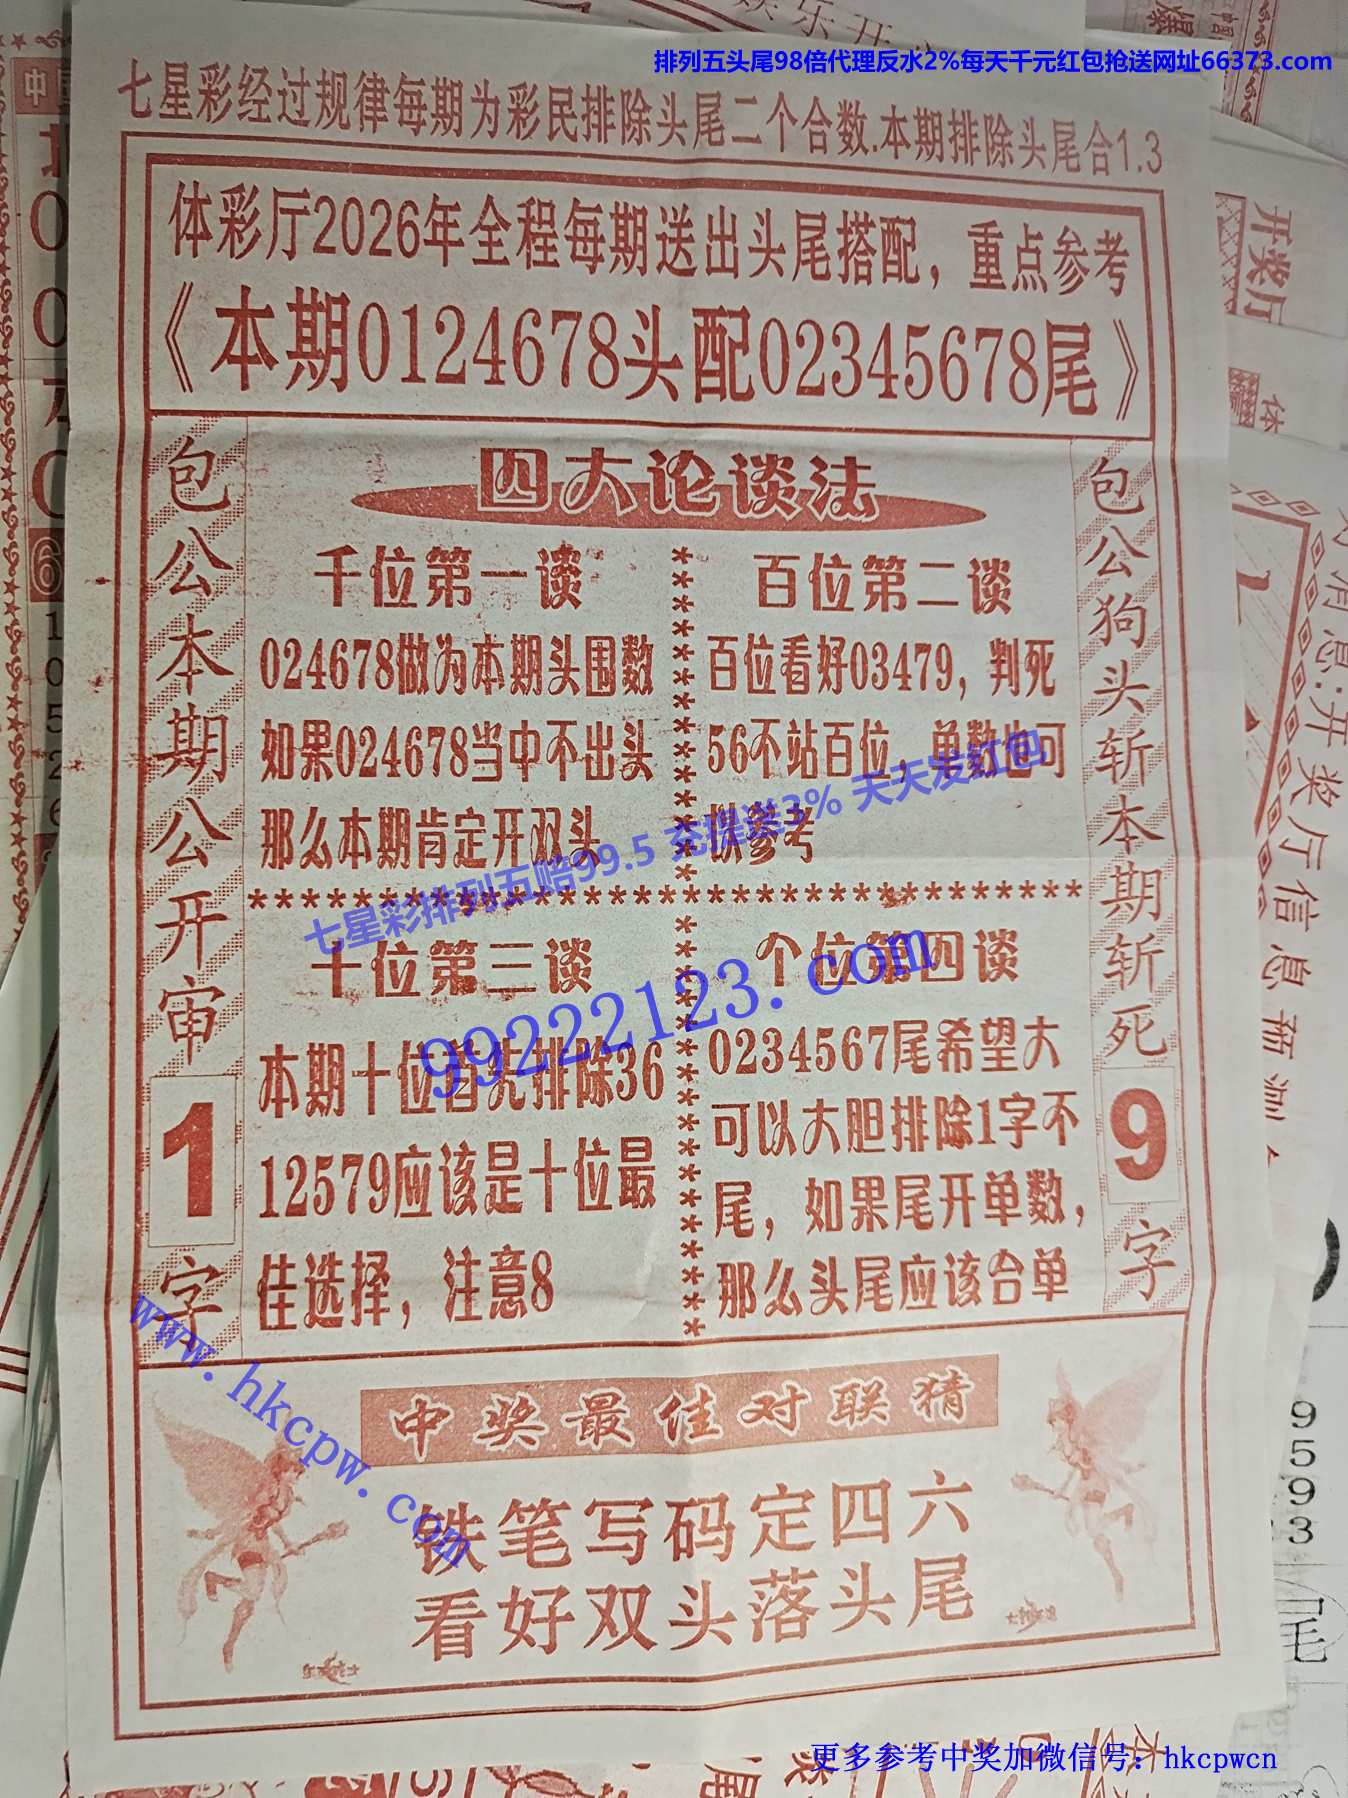 排列五头尾98倍代理反水2%每天千元红包抢送网址66373.com
七星彩经过规律每期为彩民排除头尾二个合数.本期排除头尾合1.3
体彩厅2026年全程每期送出头尾搭配，重点参考
《本期0124678头配02345678尾》
包公本期公开审
1
字
四大论谈法
千位第一谈
024678做为本期头围数
如果024678当中不出头
那么本期肯定开双头
百位第二谈
百位看好03479，判死
56不站百位，单数也可
拟参考
七星彩排列五赔99.5 充提送3% 天天发红包
***********************************
十位第三谈
本期十位首先排除36
12579应该是十位最
佳选择，注意8
个位第四谈
0234567尾希望大
可以大胆排除1字不
尾，如果尾开单数，
那么头尾应该合单
99222123.com
包公狗头斩本期斩死
9
字
www.hkcpw.com
中奖最佳对联猜
铁笔写码定四六
看好双头落头尾
开奖厅
体
消息:开奖厅信息
9
5
9
3
尾
更多参考中奖加微信号：hkcpwcn